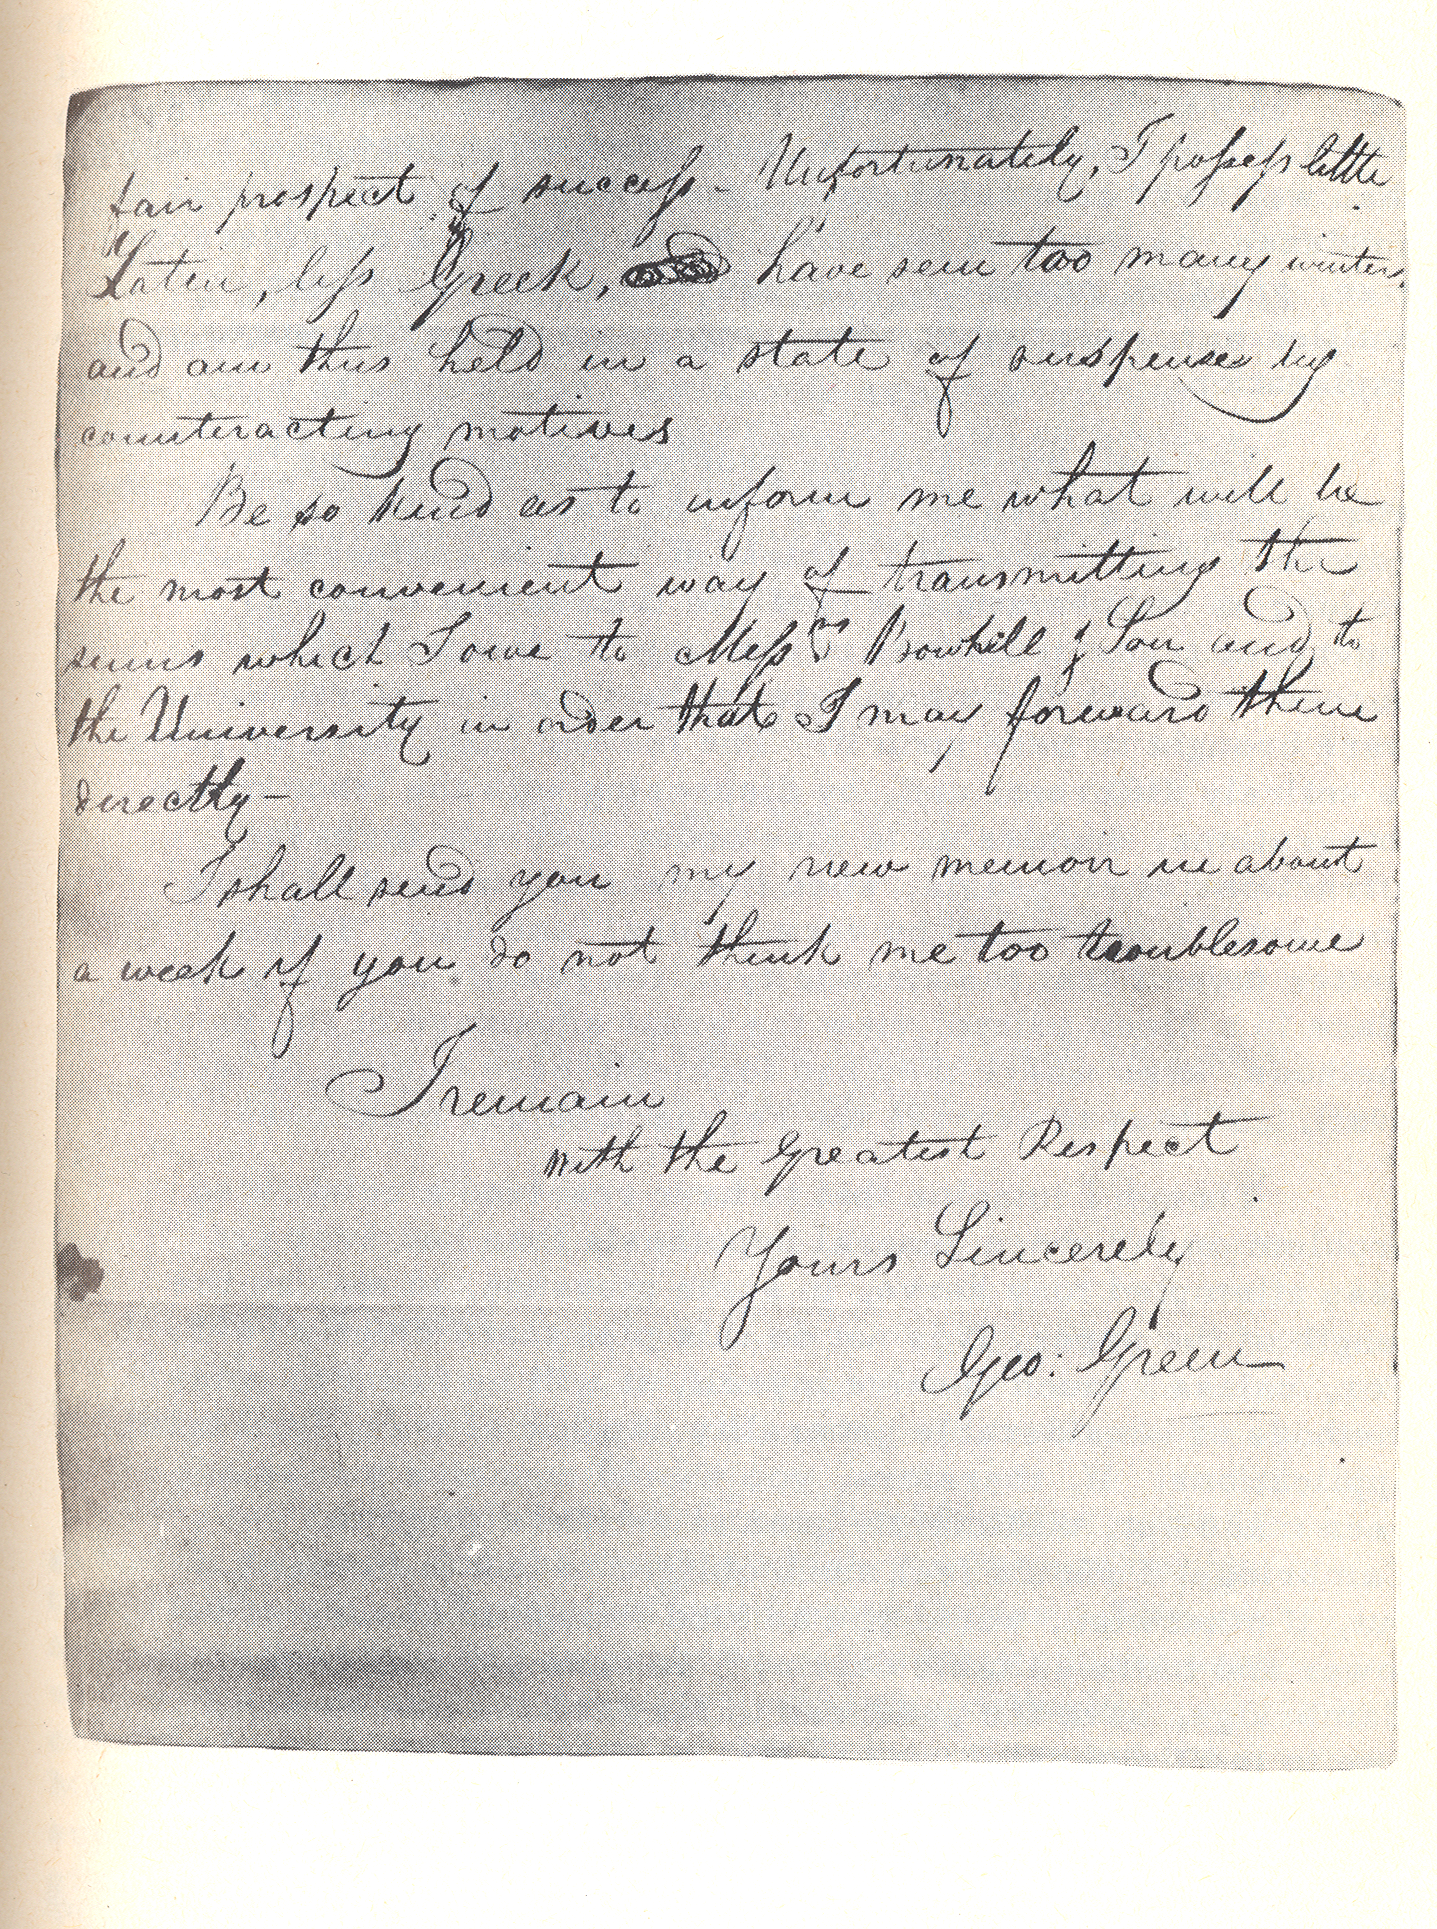 fair prospect of success – Unfortunately, I possess little
Latin, less Greek, have seen too many winters,
and am thus held in a state of suspense by
counteracting motives
Be so kind as to inform me what will be
the most convenient way of transmitting the
sums which I owe to Messrs Bowhill & Son and to
the University in order that I may forward them
directly –
I shall send you my new memoir in about
a week if you do not think me too troublesome
I remain
with the Greatest Respect
Yours Sincerely
Geo: Green